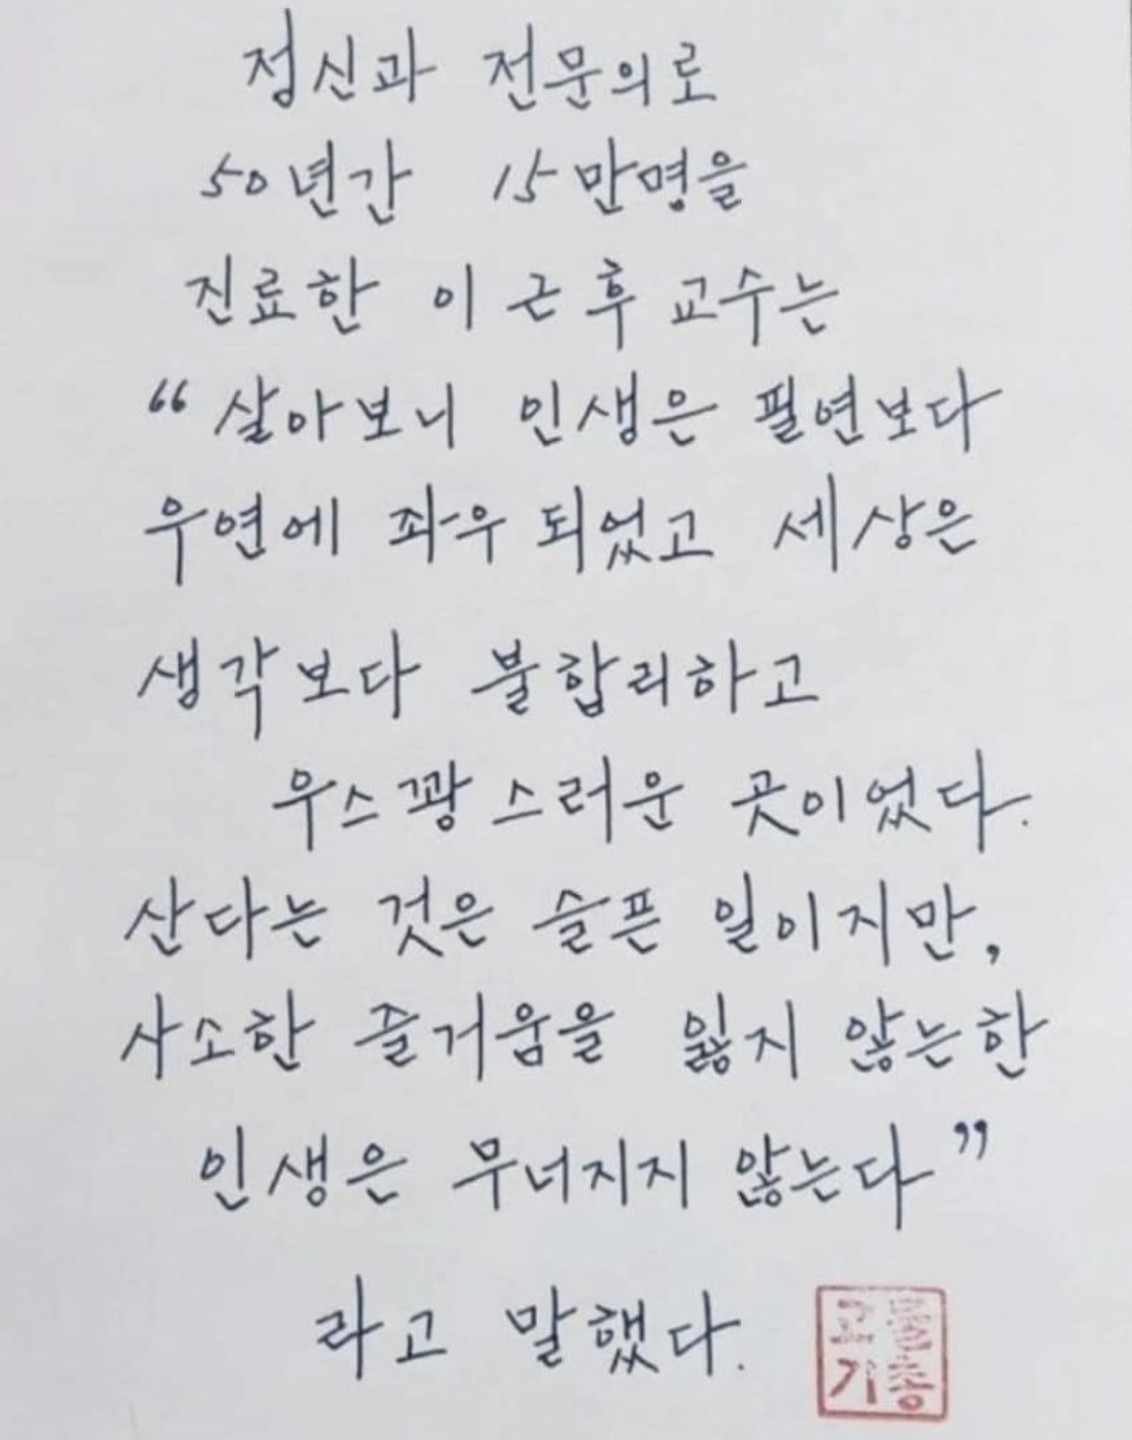 정신과 전문의로
50년간 15만명을
진료한 이근후 교수는
“살아보니 인생은 필연보다
우연에 좌우 되었고 세상은
생각보다 불합리하고
우스꽝스러운 곳이었다.
산다는 것은 슬픈 일이지만,
사소한 즐거움을 잃지 않는한
인생은 무너지지 않는다”
라고 말했다.